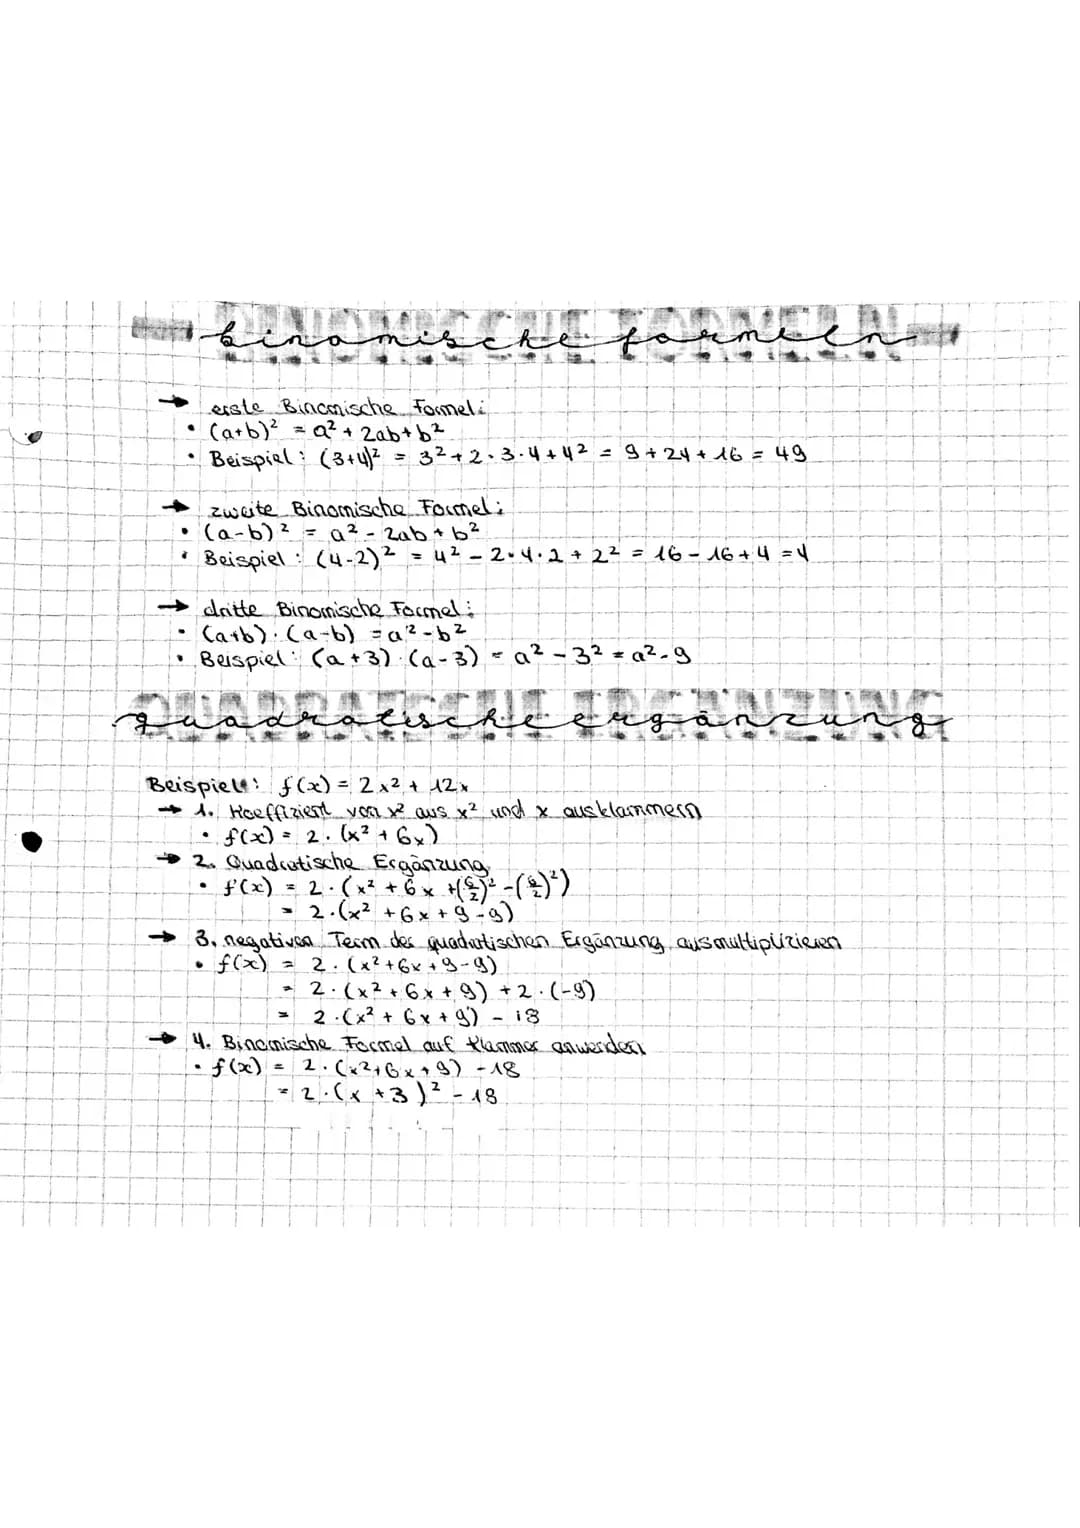 BINOMISCHE FORMELN
binomische formeln
→ erste Binomische Formel:
• (a+b)² = a² + 2ab + b²
• Beispiel: (3+4)² = 3² + 2·3·4 + 4² = 9 + 24 + 16 = 49
→ zweite Binomische Formel:
• (a-b)² = a² - 2ab + b²
• Beispiel: (4-2)² = 4² - 2·4·2 + 2² = 16 - 16 + 4 = 4
→ dritte Binomische Formel:
• (a+b)·(a-b) = a² - b²
• Beispiel: (a+3)·(a-3) = a² - 3² = a² - 9
QUADRATISCHE ERGÄNZUNG
quadratische ergänzung
Beispiel: f(x) = 2x² + 12x
→ 1. Koeffizient von x² aus x² und x ausklammern
• f(x) = 2·(x² + 6x)
→ 2. Quadratische Ergänzung
• f(x) = 2·(x² + 6x + (6/2)² - (6/2)²)
= 2·(x² + 6x + 9 - 9)
→ 3. negativen Term der quadratischen Ergänzung ausmultiplizieren
• f(x) = 2·(x² + 6x + 9 - 9)
= 2·(x² + 6x + 9) + 2·(-9)
= 2·(x² + 6x + 9) - 18
→ 4. Binomische Formel auf Klammer anwenden
• f(x) = 2·(x² + 6x + 9) - 18
= 2·(x + 3)² - 18